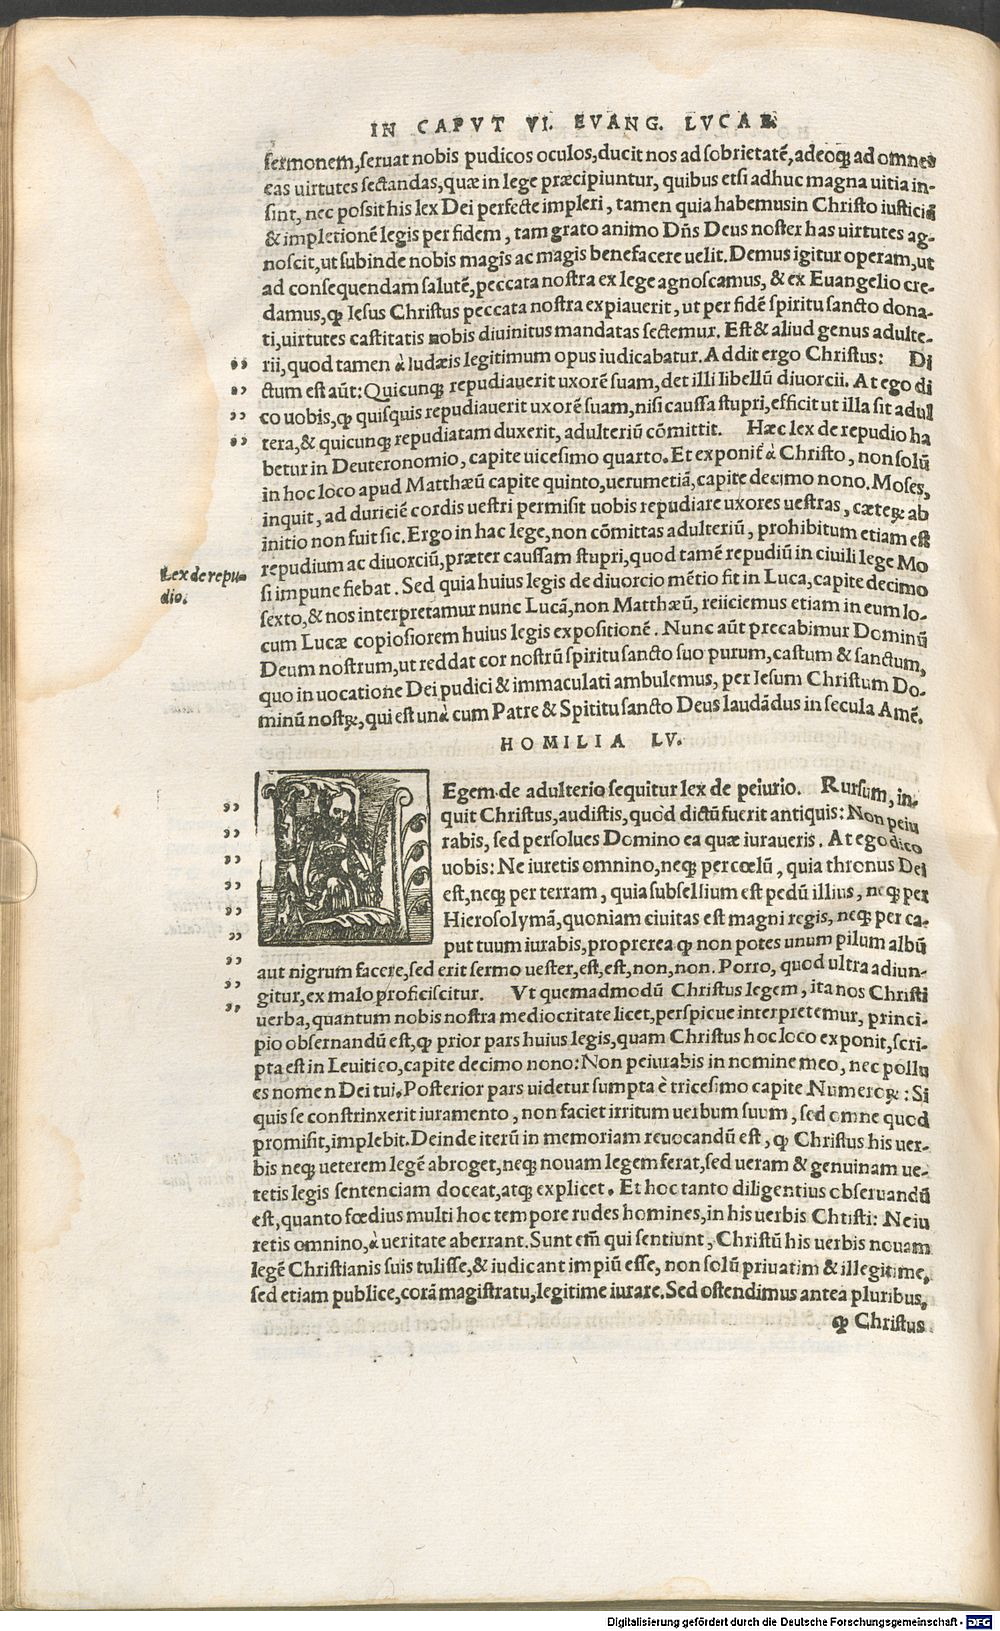 IN CAPVT VI. EVANG. LVCAE
sermonem, seruat nobis pudicos oculos, ducit nos ad sobrietatē, adeoq́; ad omnes
eas uirtutes sectandas, quæ in lege præcipiuntur, quibus etsi adhuc magna uitia in-
sint, nec possit his lex Dei perfecte impleri, tamen quia habemus in Christo iusticiā
& impletionē legis per fidem, tam grato animo Dñs Deus noster has uirtutes ag-
noscit, ut subinde nobis magis ac magis benefacere uelit. Demus igitur operam, ut
ad consequendam salutē, peccata nostra ex lege agnoscamus, & ex Euangelio cre-
damus, ꝙ Iesus Christus peccata nostra expiauerit, ut per fidē spiritu sancto dona-
ti, uirtutes castitatis nobis diuinitus mandatas sectemur. Est & aliud genus adulte-
rii, quod tamen à Iudæis legitimum opus iudicabatur. Addit ergo Christus: Di
ctum est aūt: Quicunq; repudiauerit uxorē suam, det illi libellū diuorcii. At ego di
co uobis, ꝙ quisquis repudiauerit uxorē suam, nisi caussa stupri, efficit ut illa sit adul
tera, & quicunq; repudiatam duxerit, adulteriū cōmittit. Hæc lex de repudio ha
betur in Deuteronomio, capite uicesimo quarto. Et exponit̃ à Christo, non solū
in hoc loco apud Matthæū capite quinto, uerumetiā, capite decimo nono. Moses,
inquit, ad duriciē cordis uestri permisit uobis repudiare uxores uestras, cæteꝝ ab
initio non fuit sic. Ergo in hac lege, non cōmittas adulteriū, prohibitum etiam est
repudium ac diuorciū, præter caussam stupri, quod tamē repudiū in ciuili lege Mo
si impune fiebat. Sed quia huius legis de diuorcio mētio fit in Luca, capite decimo
Lex de repu-
dio.
sexto, & nos interpretamur nunc Lucā, non Matthæū, reiiciemus etiam in eum lo-
cum Lucæ copiosiorem huius legis expositionē. Nunc aūt precabimur Dominū
Deum nostrum, ut reddat cor nostrū spiritu sancto suo purum, castum & sanctum,
quo in uocatione Dei pudici & immaculati ambulemus, per Iesum Christum Do-
minū nostꝝ, qui est unà cum Patre & Spititu sancto Deus laudādus in secula Amē.
HOMILIA LV.
LEgem de adulterio sequitur lex de peiurio. Rursum, in-
quit Christus, audistis, quòd dictū fuerit antiquis: Non peiu
rabis, sed persolues Domino ea quæ iuraueris. At ego dico
uobis: Ne iuretis omnino, neq; per cœlū, quia thronus Dei
est, neq; per terram, quia subsellium est pedū illius, neq; per
Hierosolymā, quoniam ciuitas est magni regis, neq; per ca-
put tuum iurabis, proprerea ꝙ non potes unum pilum albū
aut nigrum facere, sed erit sermo uester, est, est, non, non. Porro, quod ultra adiun-
gitur, ex malo proficiscitur. Vt quemadmodū Christus legem, ita nos Christi
uerba, quantum nobis nostra mediocritate licet, perspicue interpretemur, princi-
pio obseruandū est, ꝙ prior pars huius legis, quam Christus hoc loco exponit, scri-
pta est in Leuitico, capite decimo nono: Non peiurabis in nomine meo, nec pollu
es nomen Dei tui. Posterior pars uidetur sumpta è tricesimo capite Numeroꝝ: Si
quis se constrinxerit iuramento, non faciet irritum uerbum suum, sed omne quod
promisit, implebit. Deinde iterū in memoriam reuocandū est, ꝙ Christus his uer-
bis neq; ueterem legē abroget, neq; nouam legem ferat, sed ueram & genuinam ue-
tetis legis sentenciam doceat, atq; explicet. Et hoc tanto diligentius obseruandū
est, quanto fœdius multi hoc tempore rudes homines, in his uerbis Chtisti: Ne iu
retis omnino, à ueritate aberrant. Sunt em̃ qui sentiunt, Christū his uerbis nouam
legē Christianis suis tulisse, & iudicant impiū esse, non solū priuatim & illegitime,
sed etiam publice, corā magistratu, legitime iurare. Sed ostendimus antea pluribus,
ꝙ Christus
Digitalisierung gefördert durch die Deutsche Forschungsgemeinschaft - DFG